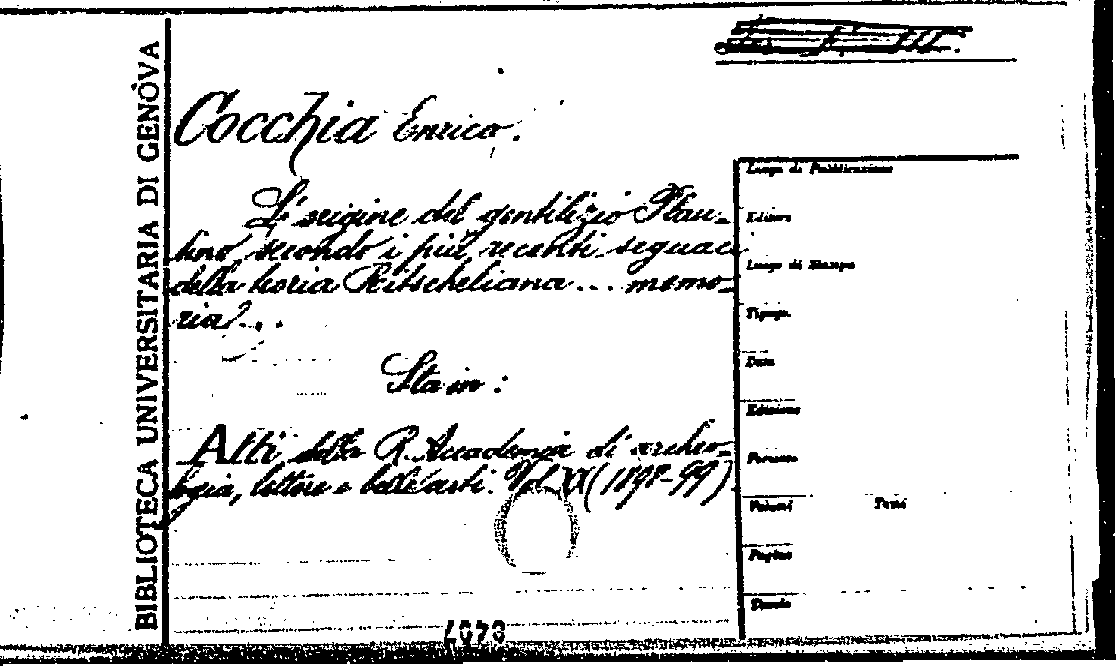 BIBLIOTECA UNIVERSITARIA DI GENOVA
Cocchia Enrico.
L'origine del gentilizio Plau-
tino secondo i più recenti seguaci
della teoria Ritscheliana ... memo-
ria ...
Sta in:
Atti della R. Accademia di archeo-
logia, lettere e belle arti. Vol. XX (1898-99)
Luogo di Pubblicazione
Editore
Luogo di Stampa
Tipogr.
Data
Edizione
Formato
Volumi Tomi
Pagine
Tavole